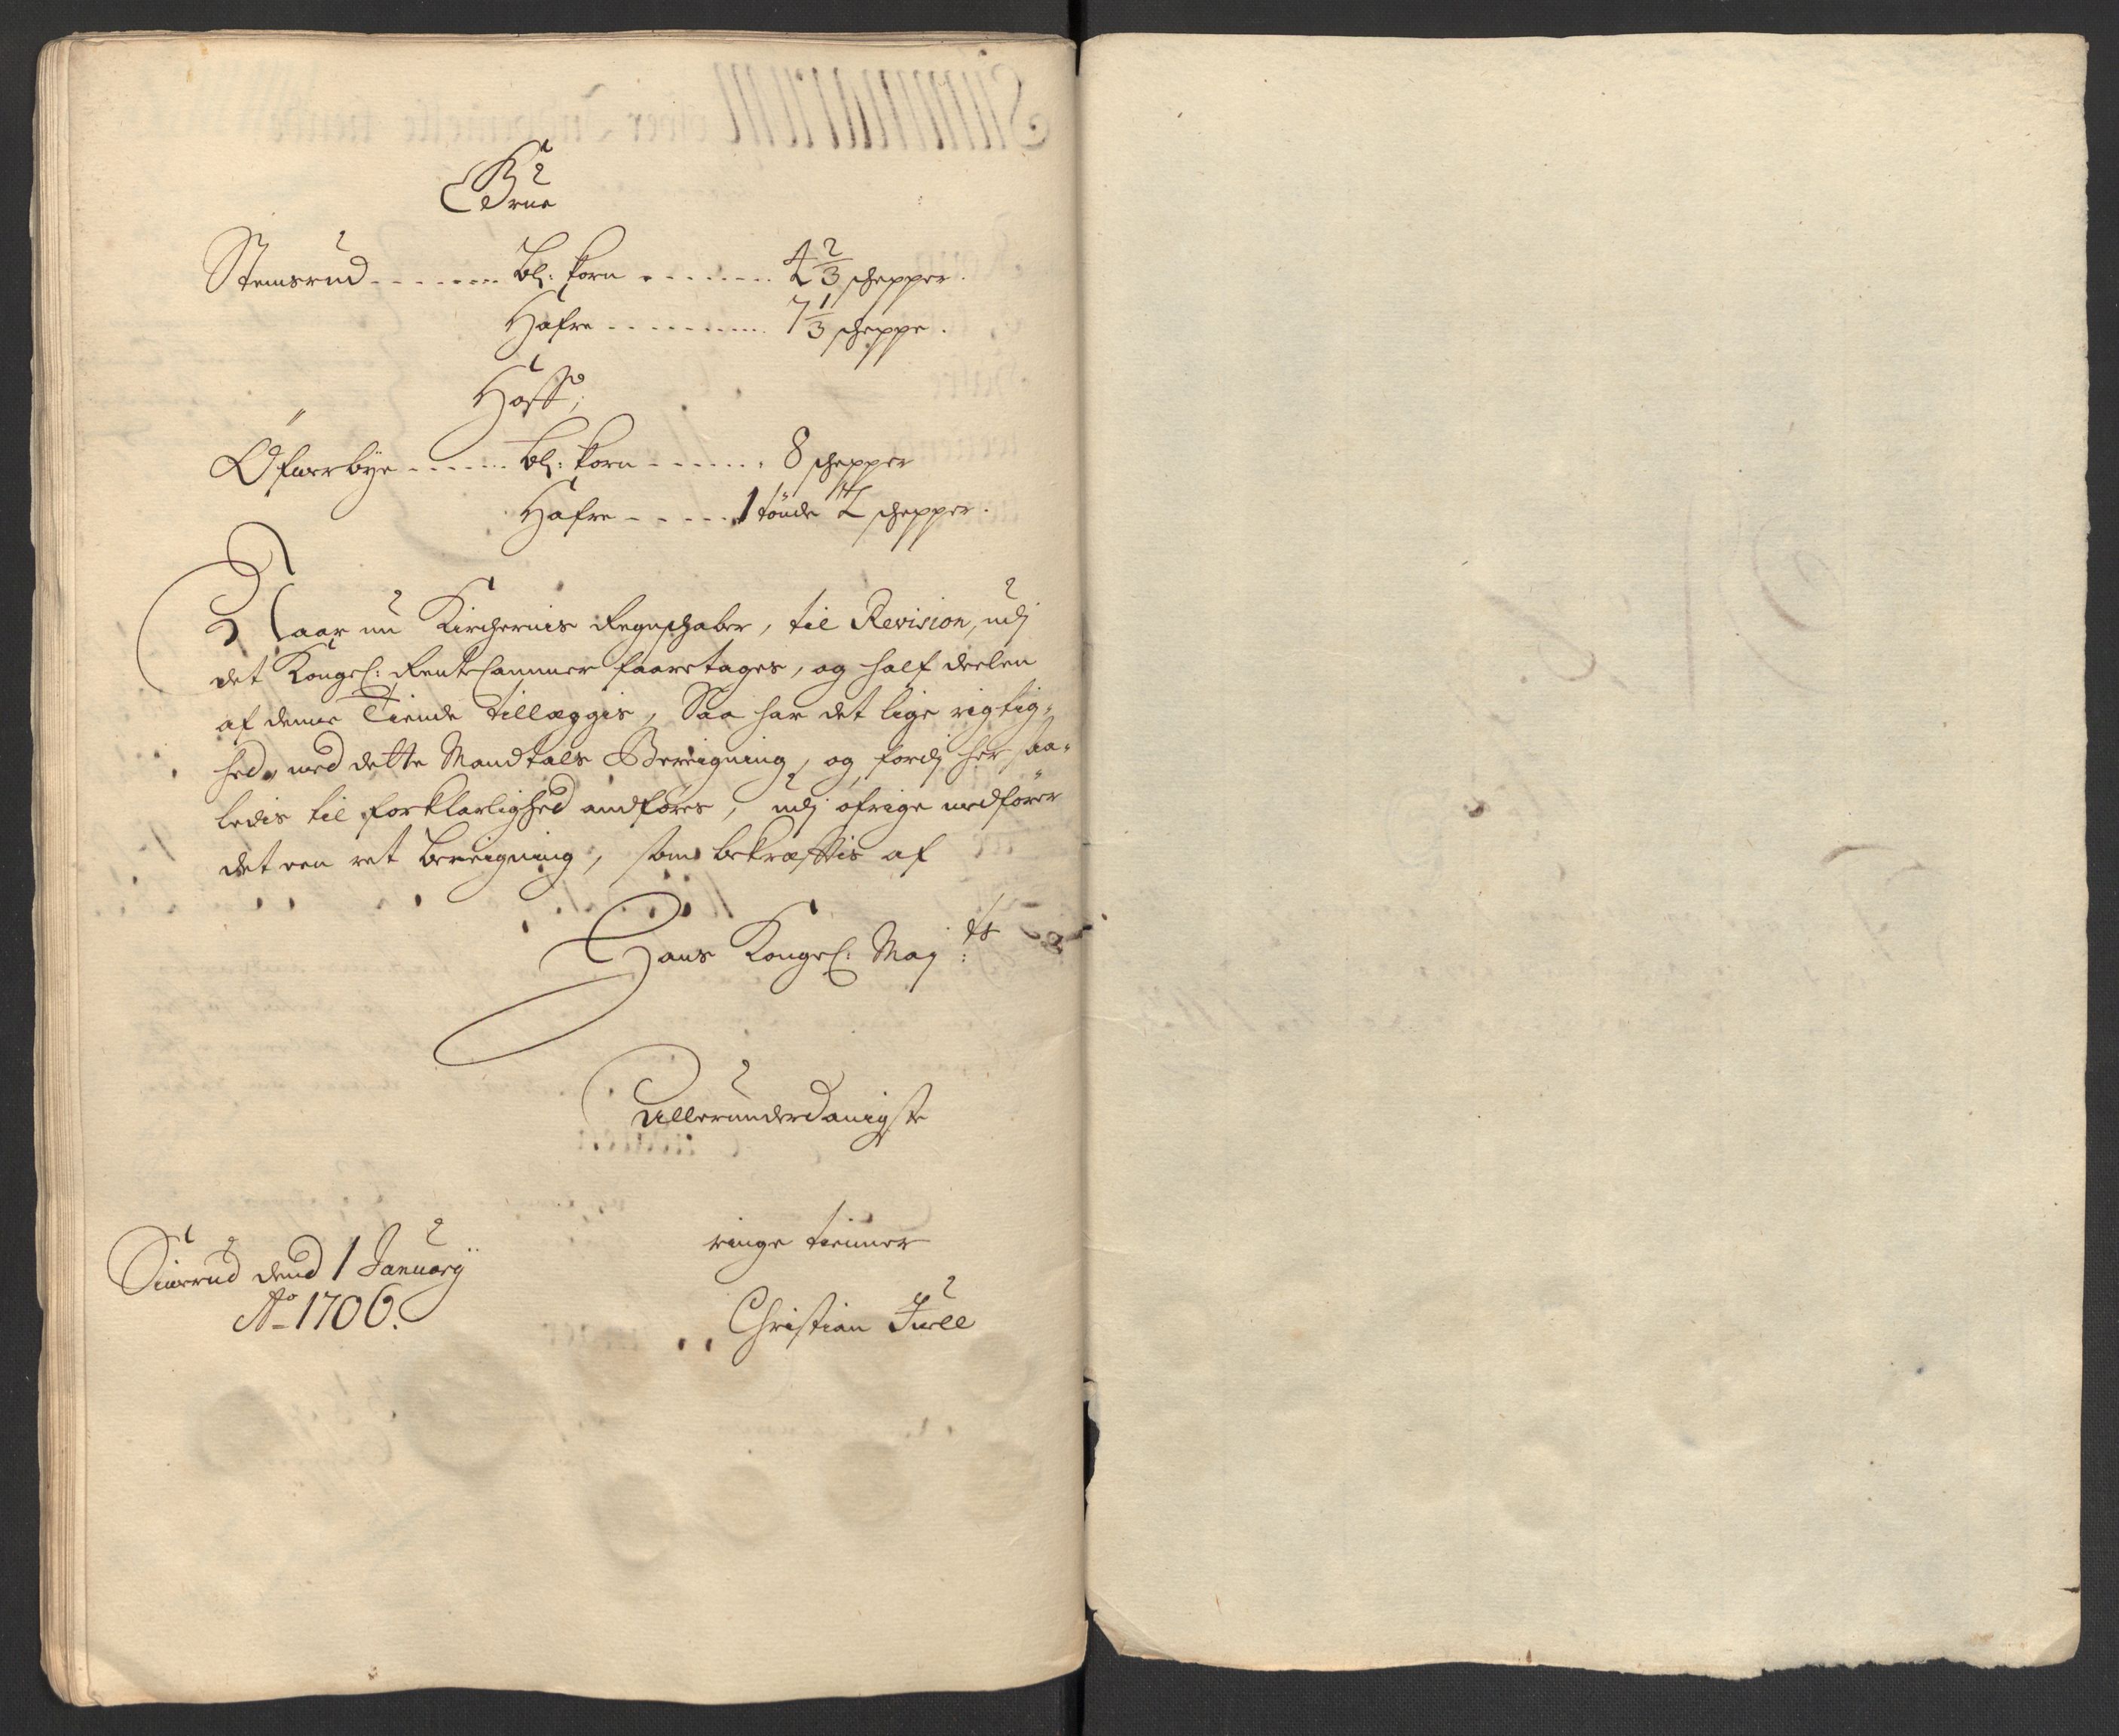 Grue
Stemsrud - - - - - - - - Bl: korn - - - - - - - - 4 2/3 schepper.
Hafre - - - - - - - - - - - 7 1/3 scheppe.
Hoff;
Øfwerbye - - - - - - - Bl: korn - - - - - - - 8 schepper
Hafre - - - - - - 1 tønde 4 schepper.
Naar nu Kirchernis Regnschaber, til Revision, udj
det Kongel: RenteCammer faaretages, og half deelen
af denne Tiende tillæggis, Saa har det lige rigtig-
hed, med dette Mandtals Bereigning, og fordj her saa-
ledis til forklarlighed andføres, udj øfrige medfører
det een ret bereigning, som bekræfftis af
Hans Kongel: Maj:ts
Allerunderdanigste
ringe tienner
Christian Juell
Siwerud dend 1 January
Ao 1706.